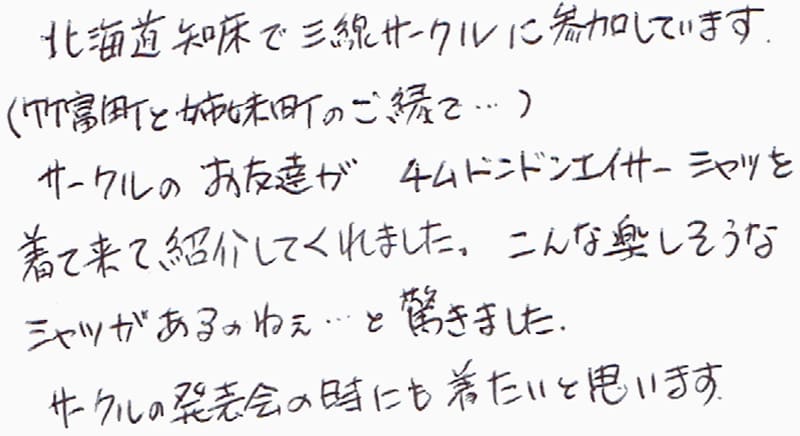 北海道知床で三線サークルに参加しています.
(竹富町と姉妹町のご縁で…)
サークルのお友達が チムドンドンエイサーシャツを
着て来て紹介してくれました。こんな楽しそうな
シャツがあるのねぇ…と驚きました.
サークルの発表会の時にも着たいと思います.